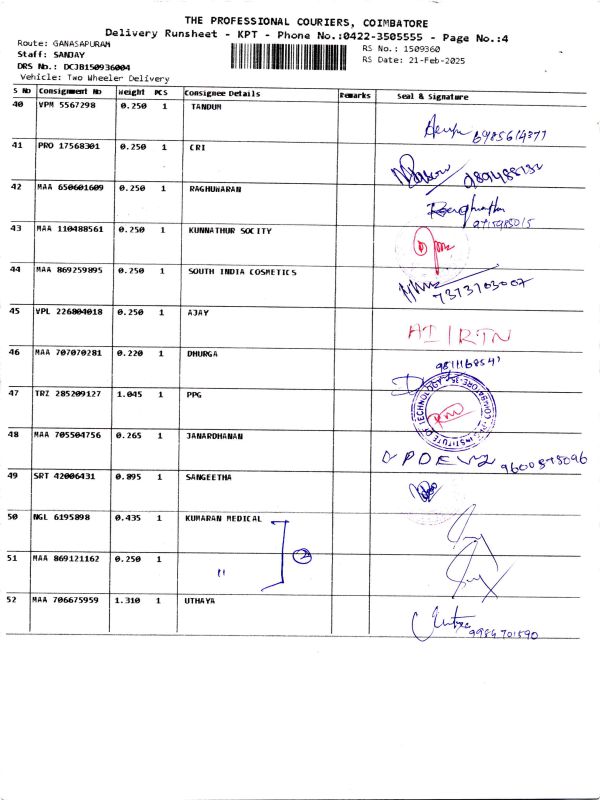 THE PROFESSIONAL COURIERS, COIMBATORE
Delivery Runsheet - KPT - Phone No.:0422-3505555 - Page No.:4
Route: GANASAPURAM
RS No.: 1509360
Staff: SANJAY
RS Date: 21-Feb-2025
DRS No.: DCJB150936004
Vehicle: Two Wheeler Delivery
S No Consignment No Weight PCS Consignee Details Remarks Seal & Signature
40 VPM 5567298 0.250 1 TANDUM
41 PRO 17568301 0.250 1 CRI
42 MAA 650601609 0.250 1 RAGHUWARAN
43 MAA 110488561 0.250 1 KUNNATHUR SOCITY
44 MAA 869259895 0.250 1 SOUTH INDIA COSMETICS
7373703007
45 VPL 226804018 0.250 1 AJAY
46 MAA 707070281 0.220 1 DHURGA
47 TRZ 285209127 1.045 1 PPG
INSTITUTE OF TECHNOLOGY
48 MAA 705504756 0.265 1 JANARDHANAN
49 SRT 42006431 0.895 1 SANGEETHA
50 NGL 6195898 0.435 1 KUMARAN MEDICAL
2
51 MAA 869121162 0.250 1 "
52 MAA 706675959 1.310 1 UTHAYA